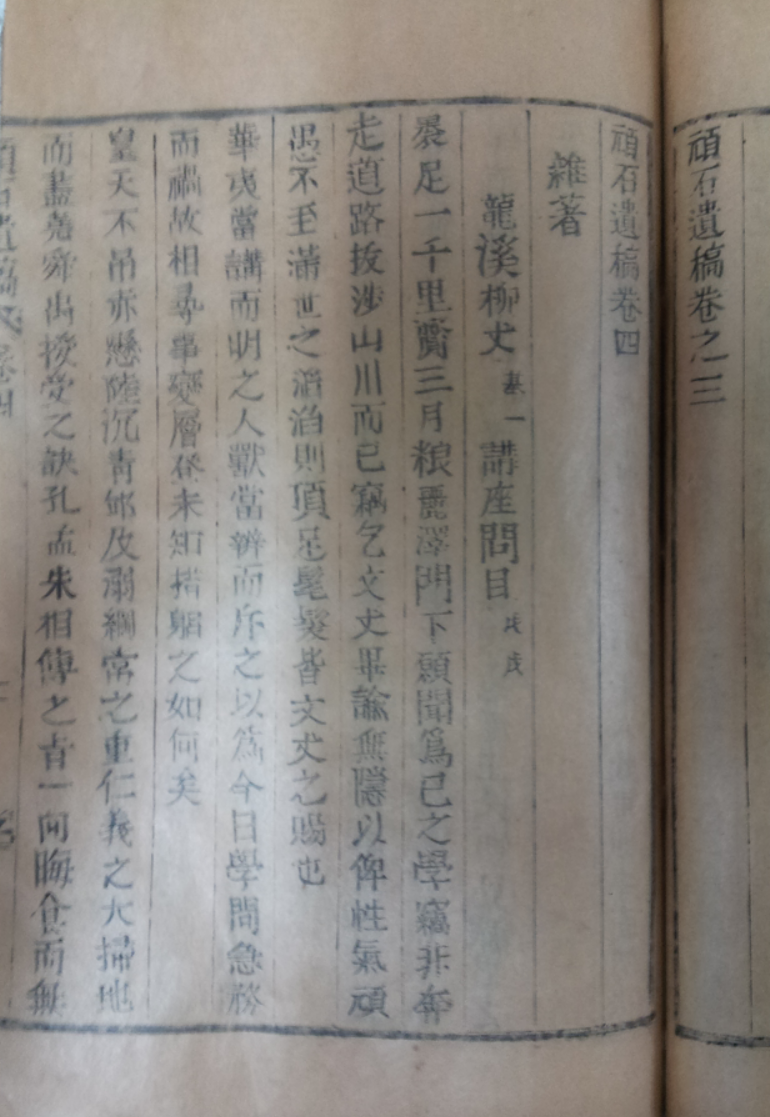 頑石遺稿卷之三
頑石遺稿卷四
雜著
龍溪柳丈基一講座問目戊戌
裹足一千里齎三月粮麗澤門下願聞爲己之學竊非奔
走道路拔涉山川而已竊乞文丈畢諭無隱以俾性氣頑
愚不至滿世之滔滔則頂足髦髮皆文丈之賜也
華夷當講而明之人獸當辨而斥之以爲今日學問急務
而禍故相尋事變層生未知措躬之如何矣
皇天不吊赤縣陸沉靑邱及溺綱常之重仁義之大掃地
而盡堯舜禹授受之訣孔孟朱相傳之旨一向晦食而無
頑石遺稿 卷四